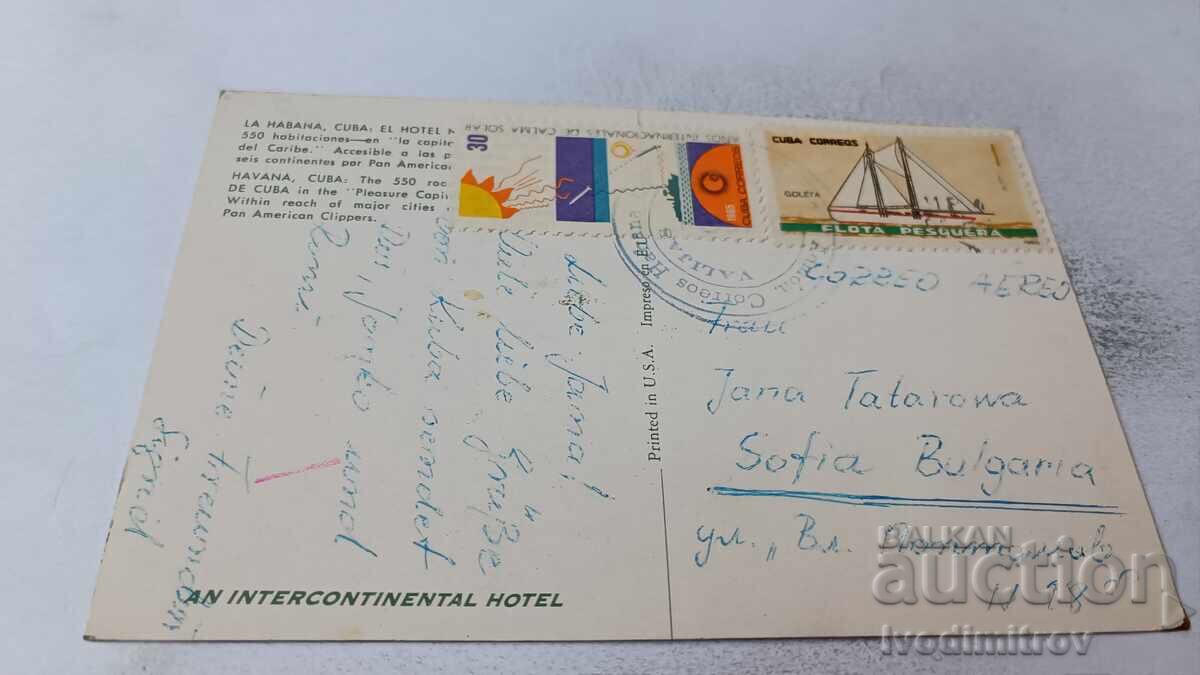 LA HABANA, CUBA: EL HOTEL
550 habitaciones—en "la capita
del Caribe." Accesible a las p
seis continentes por Pan American
HAVANA, CUBA: The 550 roo
DE CUBA in the "Pleasure Capi
Within reach of major cities
Pan American Clippers.
AÑOS INTERNACIONALES DE CALMA SOLAR
30
1965
CUBA CORREOS
CUBA CORREOS
GOLETA
FLOTA PESQUERA
Correos Habana
VALIJAS
CORREO AEREO
Liebe Jana!
Viele liebe Grüße
von Kuba sendet
Dir Jonko und
Deine Freundin
Sigrid
Printed in U.S.A. Impreso en E.U.
Frau
Jana Tatarowa
Sofia Bulgaria
ул. "Вл.
N 18
AN INTERCONTINENTAL HOTEL
BALKAN
auction
Ivodimitrov